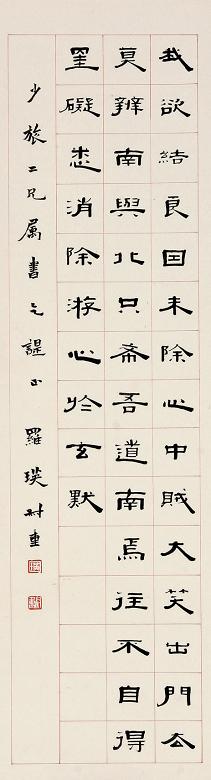 我欲結良因未除心中賊大笑出門去
莫辨南與北只吾道南焉往不自得
罣礙悉消除游心於玄默
少旅二兄屬書乞諟正 羅瑛